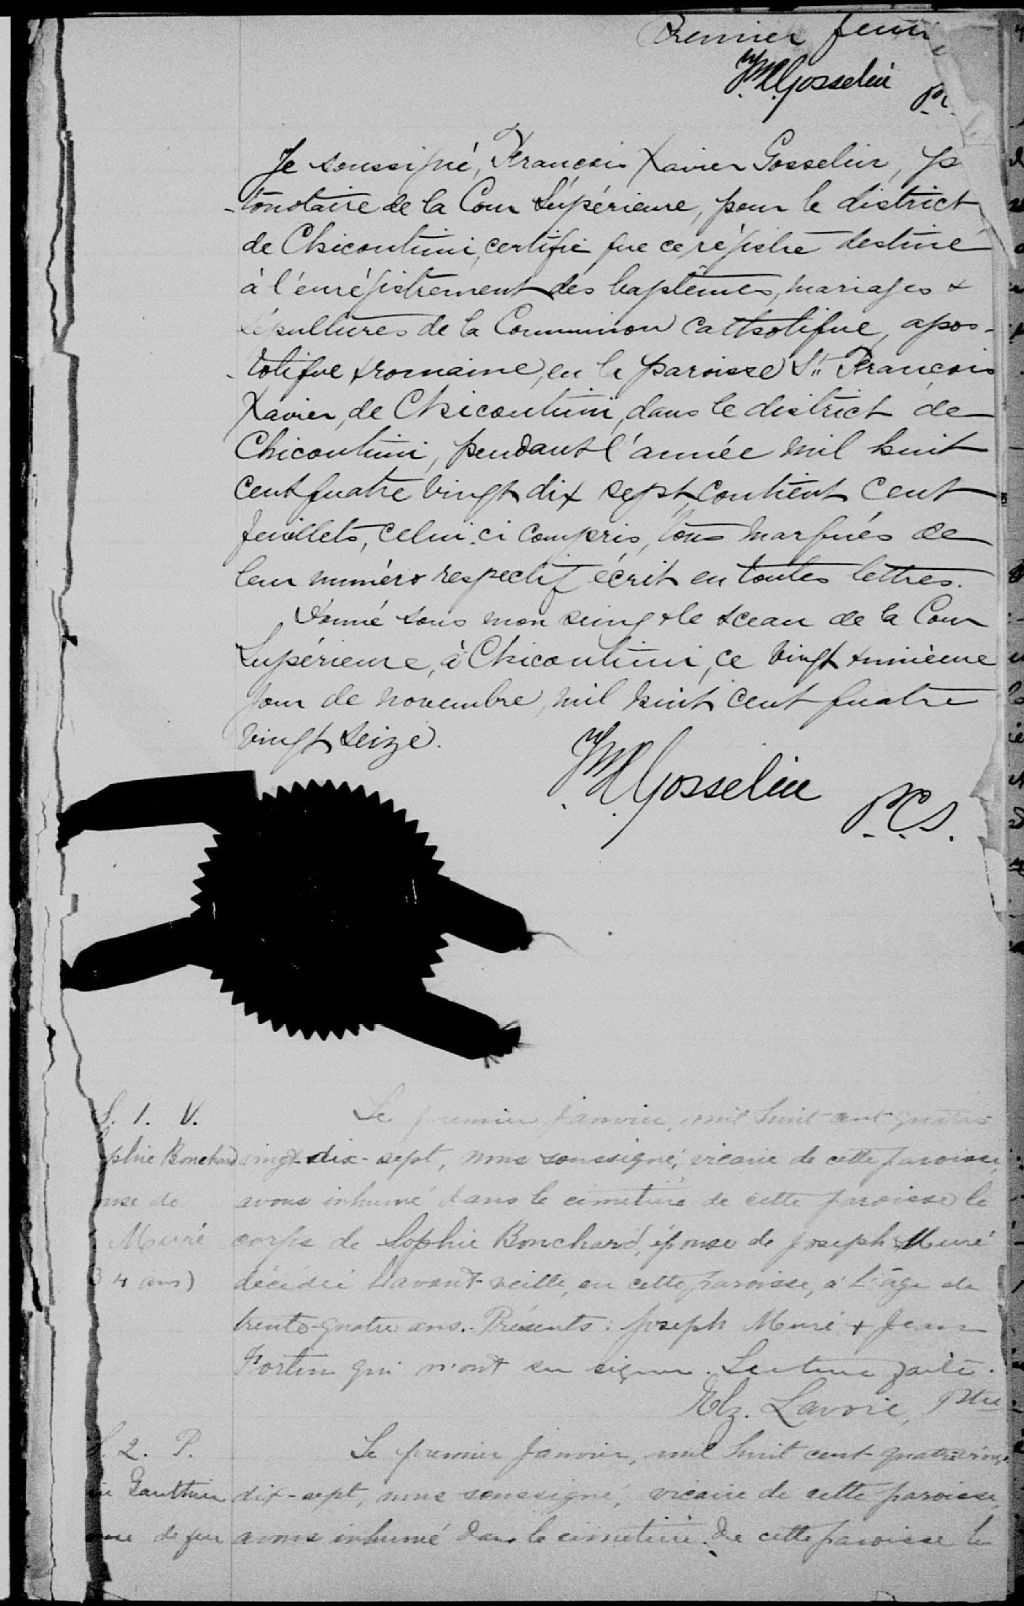 Premier feuil
F.X. Gosselin
P.C.
Je soussigné, François Xavier Gosselin, p
-tonotaire de la Cour Supérieure, pour le district
de Chicoutimi, certifie que ce régistre destiné
à l'enrégistrement des baptêmes, mariages &
sépultures de la Communion catholique, apos-
-tolique & romaine, en la paroisse St. François
Xavier, de Chicoutimi, dans le district de
Chicoutimi, pendant l'année mil huit
cent quatre vingt dix sept, contient cent
feuillets, celui ci compris, tous marqués de
leur numéro respectif écrit en toutes lettres.
Donné sous mon seing & le sceau de la Cour
Supérieure, à Chicoutimi, ce vingt & unième
jour de novembre, mil huit cent quatre
vingt seize.
F.X. Gosselin
P.C.S.
S. 1. V.
phie Bouchard
ouse de
Muré
34 ans)
Le premier janvier, mil huit cent quatre
vingt-dix-sept, nous soussigné, vicaire de cette paroisse,
avons inhumé dans le cimetière de cette paroisse le
corps de Sophie Bouchard, épouse de Joseph Muré
décédée l'avant-veille, en cette paroisse, à l'âge de
trente-quatre ans. Présents: Joseph Muré & Jean
Fortin qui n'ont su signer. Lecture faite.
Elz. Lavoie, Ptre
S. 2. P.
ie Gauthier
de feu
Le premier janvier, mil huit cent quatre vingt
dix-sept, nous soussigné, vicaire de cette paroisse,
avons inhumé dans le cimetière de cette paroisse le